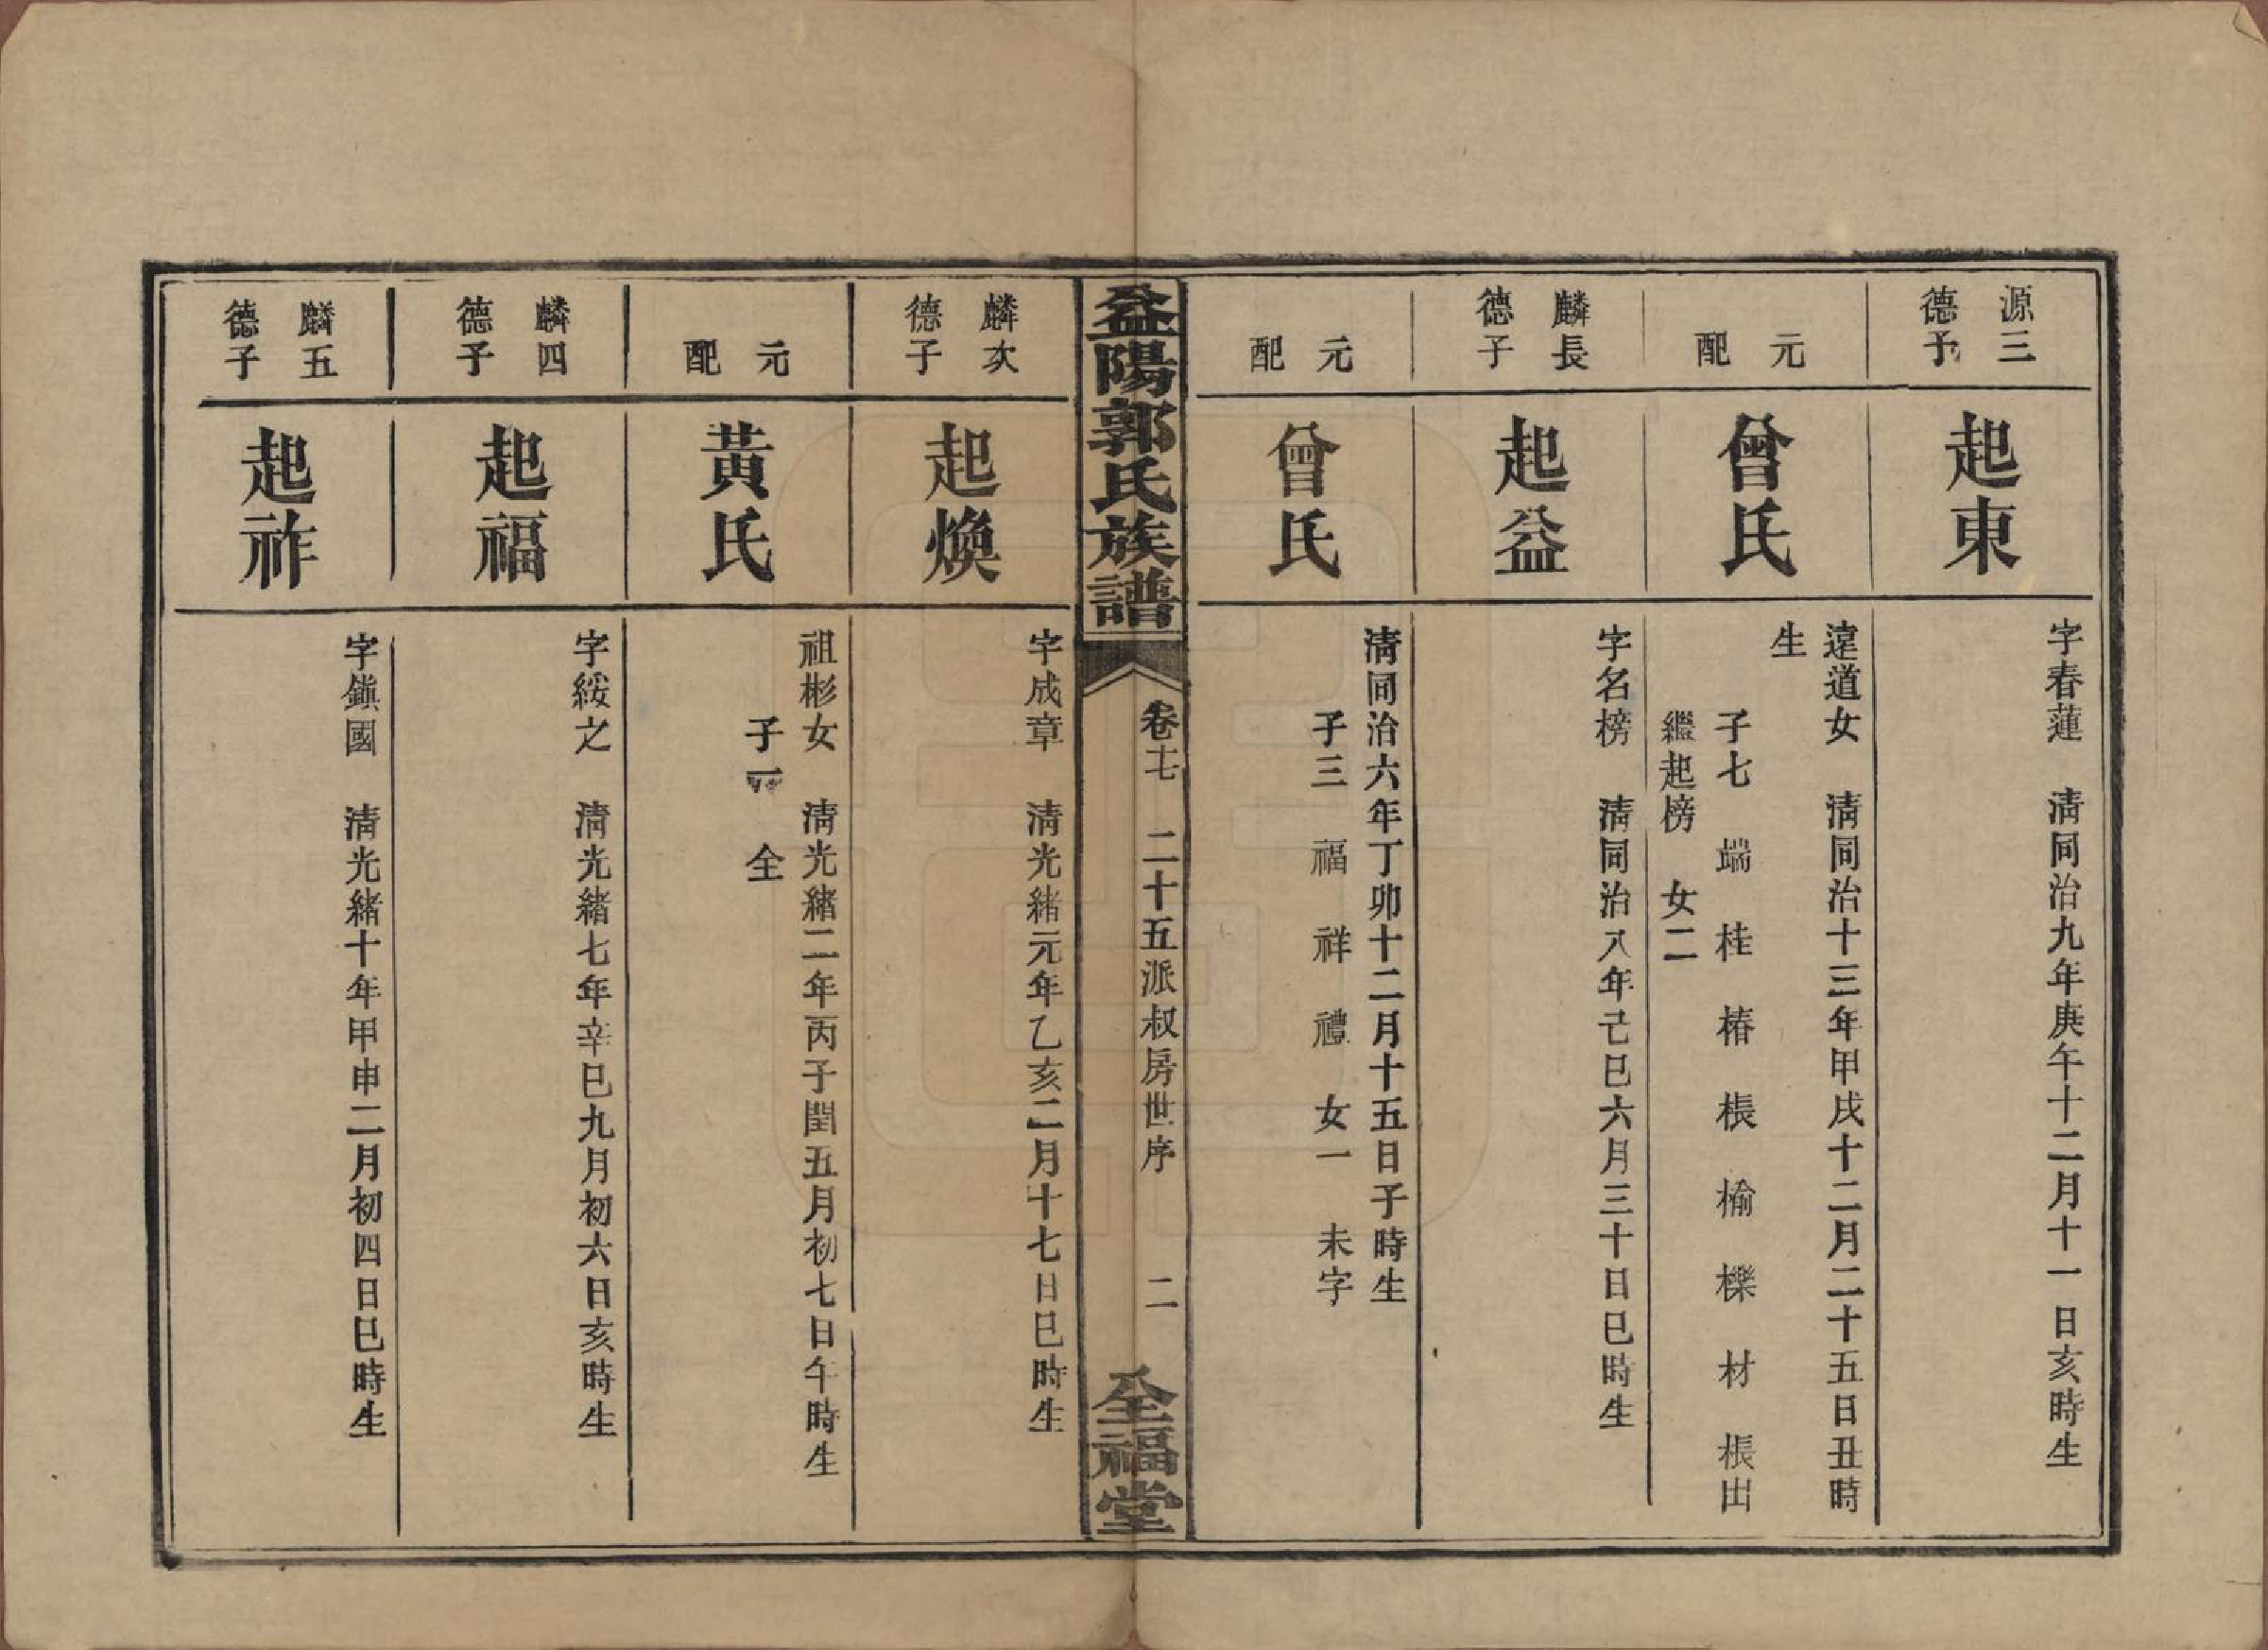 源三
德子
起東
字春蓮　清同治九年庚午十二月十一日亥時生
元
配
曾氏
遠道女　清同治十三年甲戌十二月二十五日丑時
生
子七　端　桂　椿　棖　榆　櫟　材　棖出
繼起榜　女二
麟長
德子
起益
字名榜　清同治八年己巳六月三十日巳時生
元
配
曾氏
清同治六年丁卯十二月十五日子時生
子三　福　祥　禮　女一　未字
益陽郭氏族譜
卷十七　二十五派叔房世序　二
全福堂
麟次
德子
起煥
字成章　清光緒元年乙亥二月十七日巳時生
元
配
黃氏
祖彬女　清光緒二年丙子閏五月初七日午時生
子　全
麟四
德子
起福
字綏之　清光緒七年辛巳九月初六日亥時生
麟五
德子
起祚
字鎮國　清光緒十年甲申二月初四日巳時生